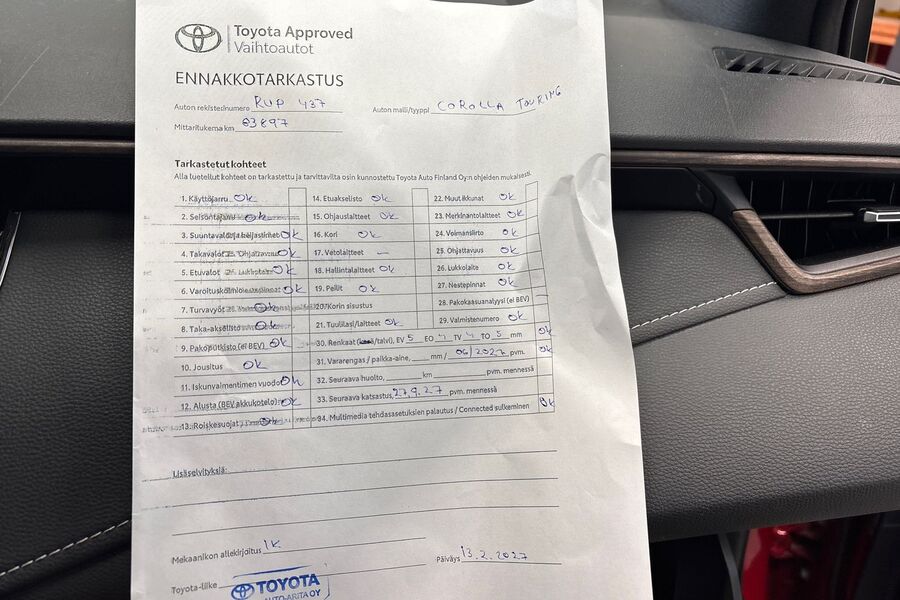 Toyota Approved
Vaihtoautot
ENNAKKOTARKASTUS
Auton rekisterinumero RUP 437 Auton malli/tyyppi COROLLA TOURING
Mittarilukema km 63897
Tarkastetut kohteet
Alla luetellut kohteet on tarkastettu ja tarvittavilta osin kunnostettu Toyota Auto Finland Oy:n ohjeiden mukaisesti.
1. Käyttöjarru Ok
2. Seisontajarru Ok
3. Suuntavalot ja heijastimet Ok
4. Takavalot Ok
5. Etuvalot Ok
6. Varoituskolmio Ok
7. Turvavyöt Ok
8. Taka-akselisto Ok
9. Pakoputkisto (ei BEV) Ok
10. Jousitus Ok
11. Iskunvaimentimen vuodot Ok
12. Alusta (BEV akkukotelo) Ok
13. Roiskesuojat Ok
14. Etuakselisto Ok
15. Ohjauslaitteet Ok
16. Kori Ok
17. Vetolaitteet –
18. Hallintalaitteet Ok
19. Peilit Ok
20. Korin sisustus
21. Tuulilasi/laitteet Ok
22. Muut ikkunat Ok
23. Merkinantolaitteet Ok
24. Voimansiirto Ok
25. Ohjattavuus Ok
26. Lukkolaite Ok
27. Nestepinnat Ok
28. Pakokaasuanalyysi (ei BEV) –
29. Valmistenumero Ok
30. Renkaat (kesä/talvi), EV 5 EO 4 TV 4 TO 5 mm Ok
31. Vararengas / paikka-aine, mm / 06/2027 pvm. Ok
32. Seuraava huolto, km pvm. mennessä
33. Seuraava katsastus, 27.9.27 pvm. mennessä
34. Multimedia tehdasasetuksien palautus / Connected sulkeminen Ok
Lisäselvityksiä:
Mekaanikon allekirjoitus IK Päiväys 13.2.2027
Toyota-liike TOYOTA
AUTO-ARITA OY